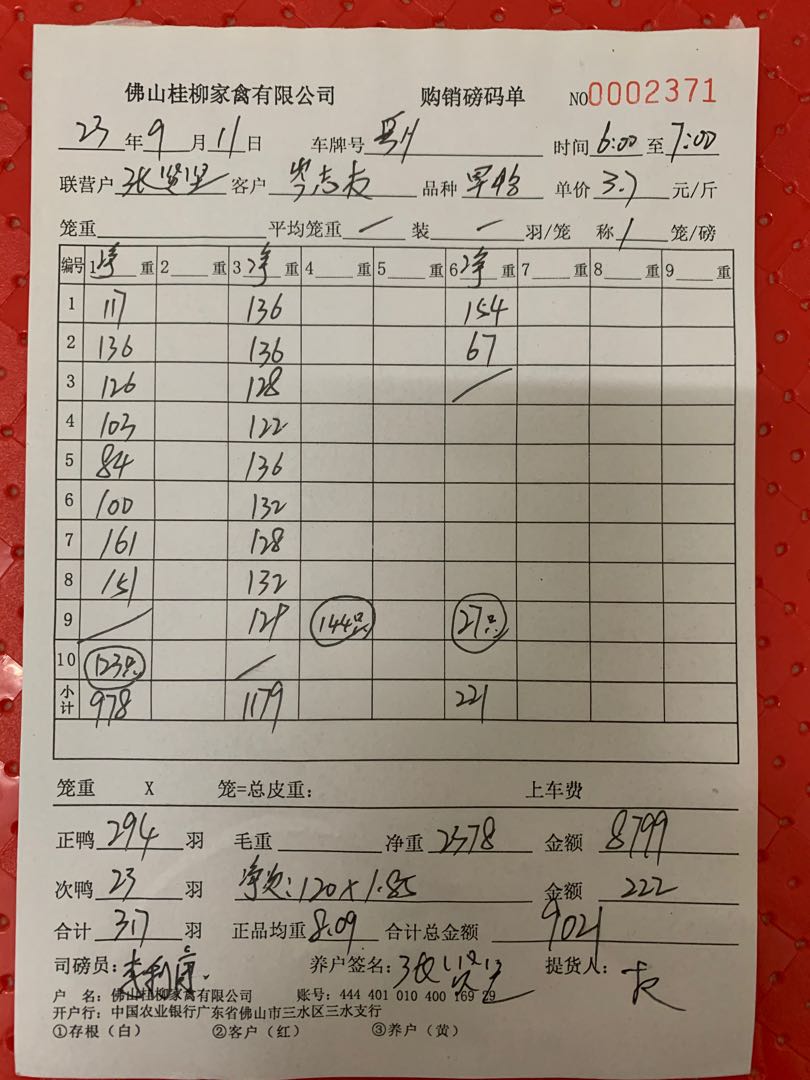 佛山桂柳家禽有限公司 购销磅码单 NO0002371
23年9月11日 车牌号 时间6:00至7:00
联营户张 客户岑志友 品种 单价3.7元/斤
笼重 平均笼重/装/羽/笼 称1笼/磅
编号 1净重 2重 3净重 4重 5重 6净重 7重 8重 9重
1 117 136 154
2 136 136 67
3 126 128 /
4 103 122
5 84 136
6 100 132
7 161 128
8 151 132
9 / 129 144只 27只
10 123只 /
小计 978 1179 221
笼重 X 笼=总皮重: 上车费
正鸭294羽 毛重 净重2378 金额8799
次鸭23羽 净次:120×1.85 金额222
合计317羽 正品均重8.09 合计总金额9021
司磅员: 养户签名:张 提货人:
户 名:佛山桂柳家禽有限公司 账号:444 401 010 400 169 29
开户行:中国农业银行广东省佛山市三水区三水支行
①存根(白) ②客户(红) ③养户(黄)